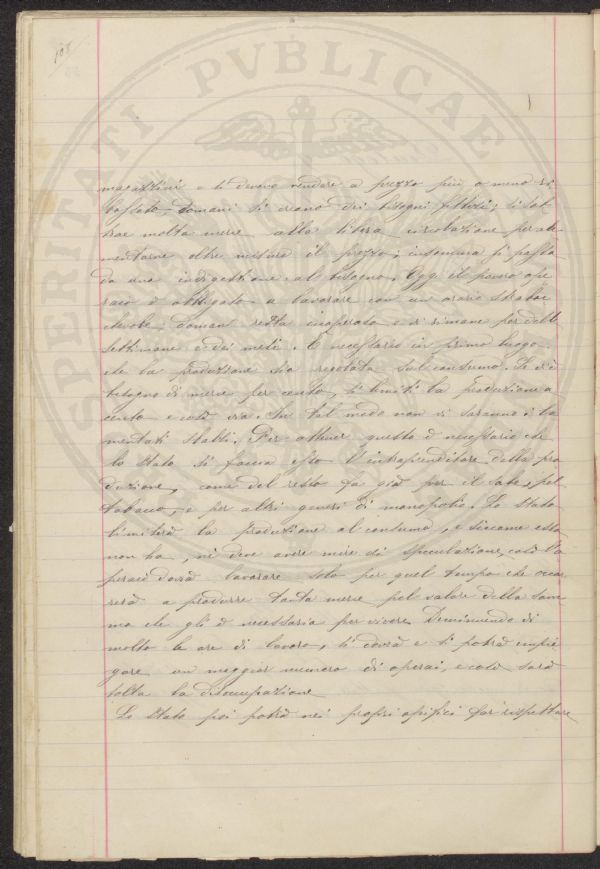 108
SPERITATI PVBLICAE
magazzini e si devono vendere a prezzo più o meno ri
bassato, domani si creano dei bisogni fittizi, si sot
trae molta merce alla libera circolazione per au
mentarne oltre misura il prezzo; insomma si passa
da una indigestione al bisogno. Oggi il povero ope
raio è obbligato a lavorare con un orario strabo
chevole, domani resta inoperoso e vi rimane per delle
settimane e dei mesi. È necessario in primo luogo
che la produzione sia regolata sul consumo. Se v'è
bisogno di merce per cento, si limiti la produzione a
cento e così via. In tal modo non vi saranno i la
mentati sbalzi. Per ottener questo è necessario che
lo Stato si faccia esso l'intraprenditore della pro
duzione, come del resto fa già per il sale, pel
tabacco, e per altri generi di monopolio. Lo Stato
limiterà la produzione al consumo, e siccome esso
non ha, nè deve avere mire di speculazione, così l'o
peraio dovrà lavorare solo per quel tempo che occor
rerà a produrre tanta merce pel valore della som
ma che gli è necessaria per vivere. Diminuendo di
molto le ore di lavoro, si dovrà e si potrà impie
gare un maggior numero di operai, e così sarà
tolta la disoccupazione
Lo Stato poi potrà nei propri opifici far rispettare